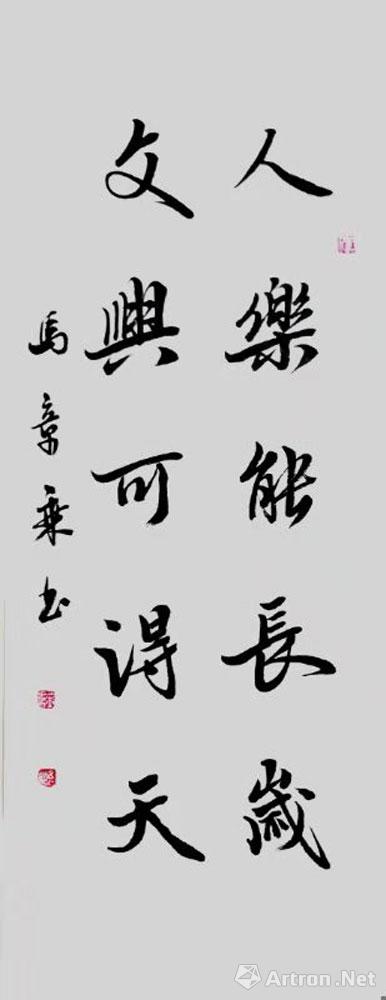 人樂能長歲
文興可得天
馬章乘书
Artron.Net